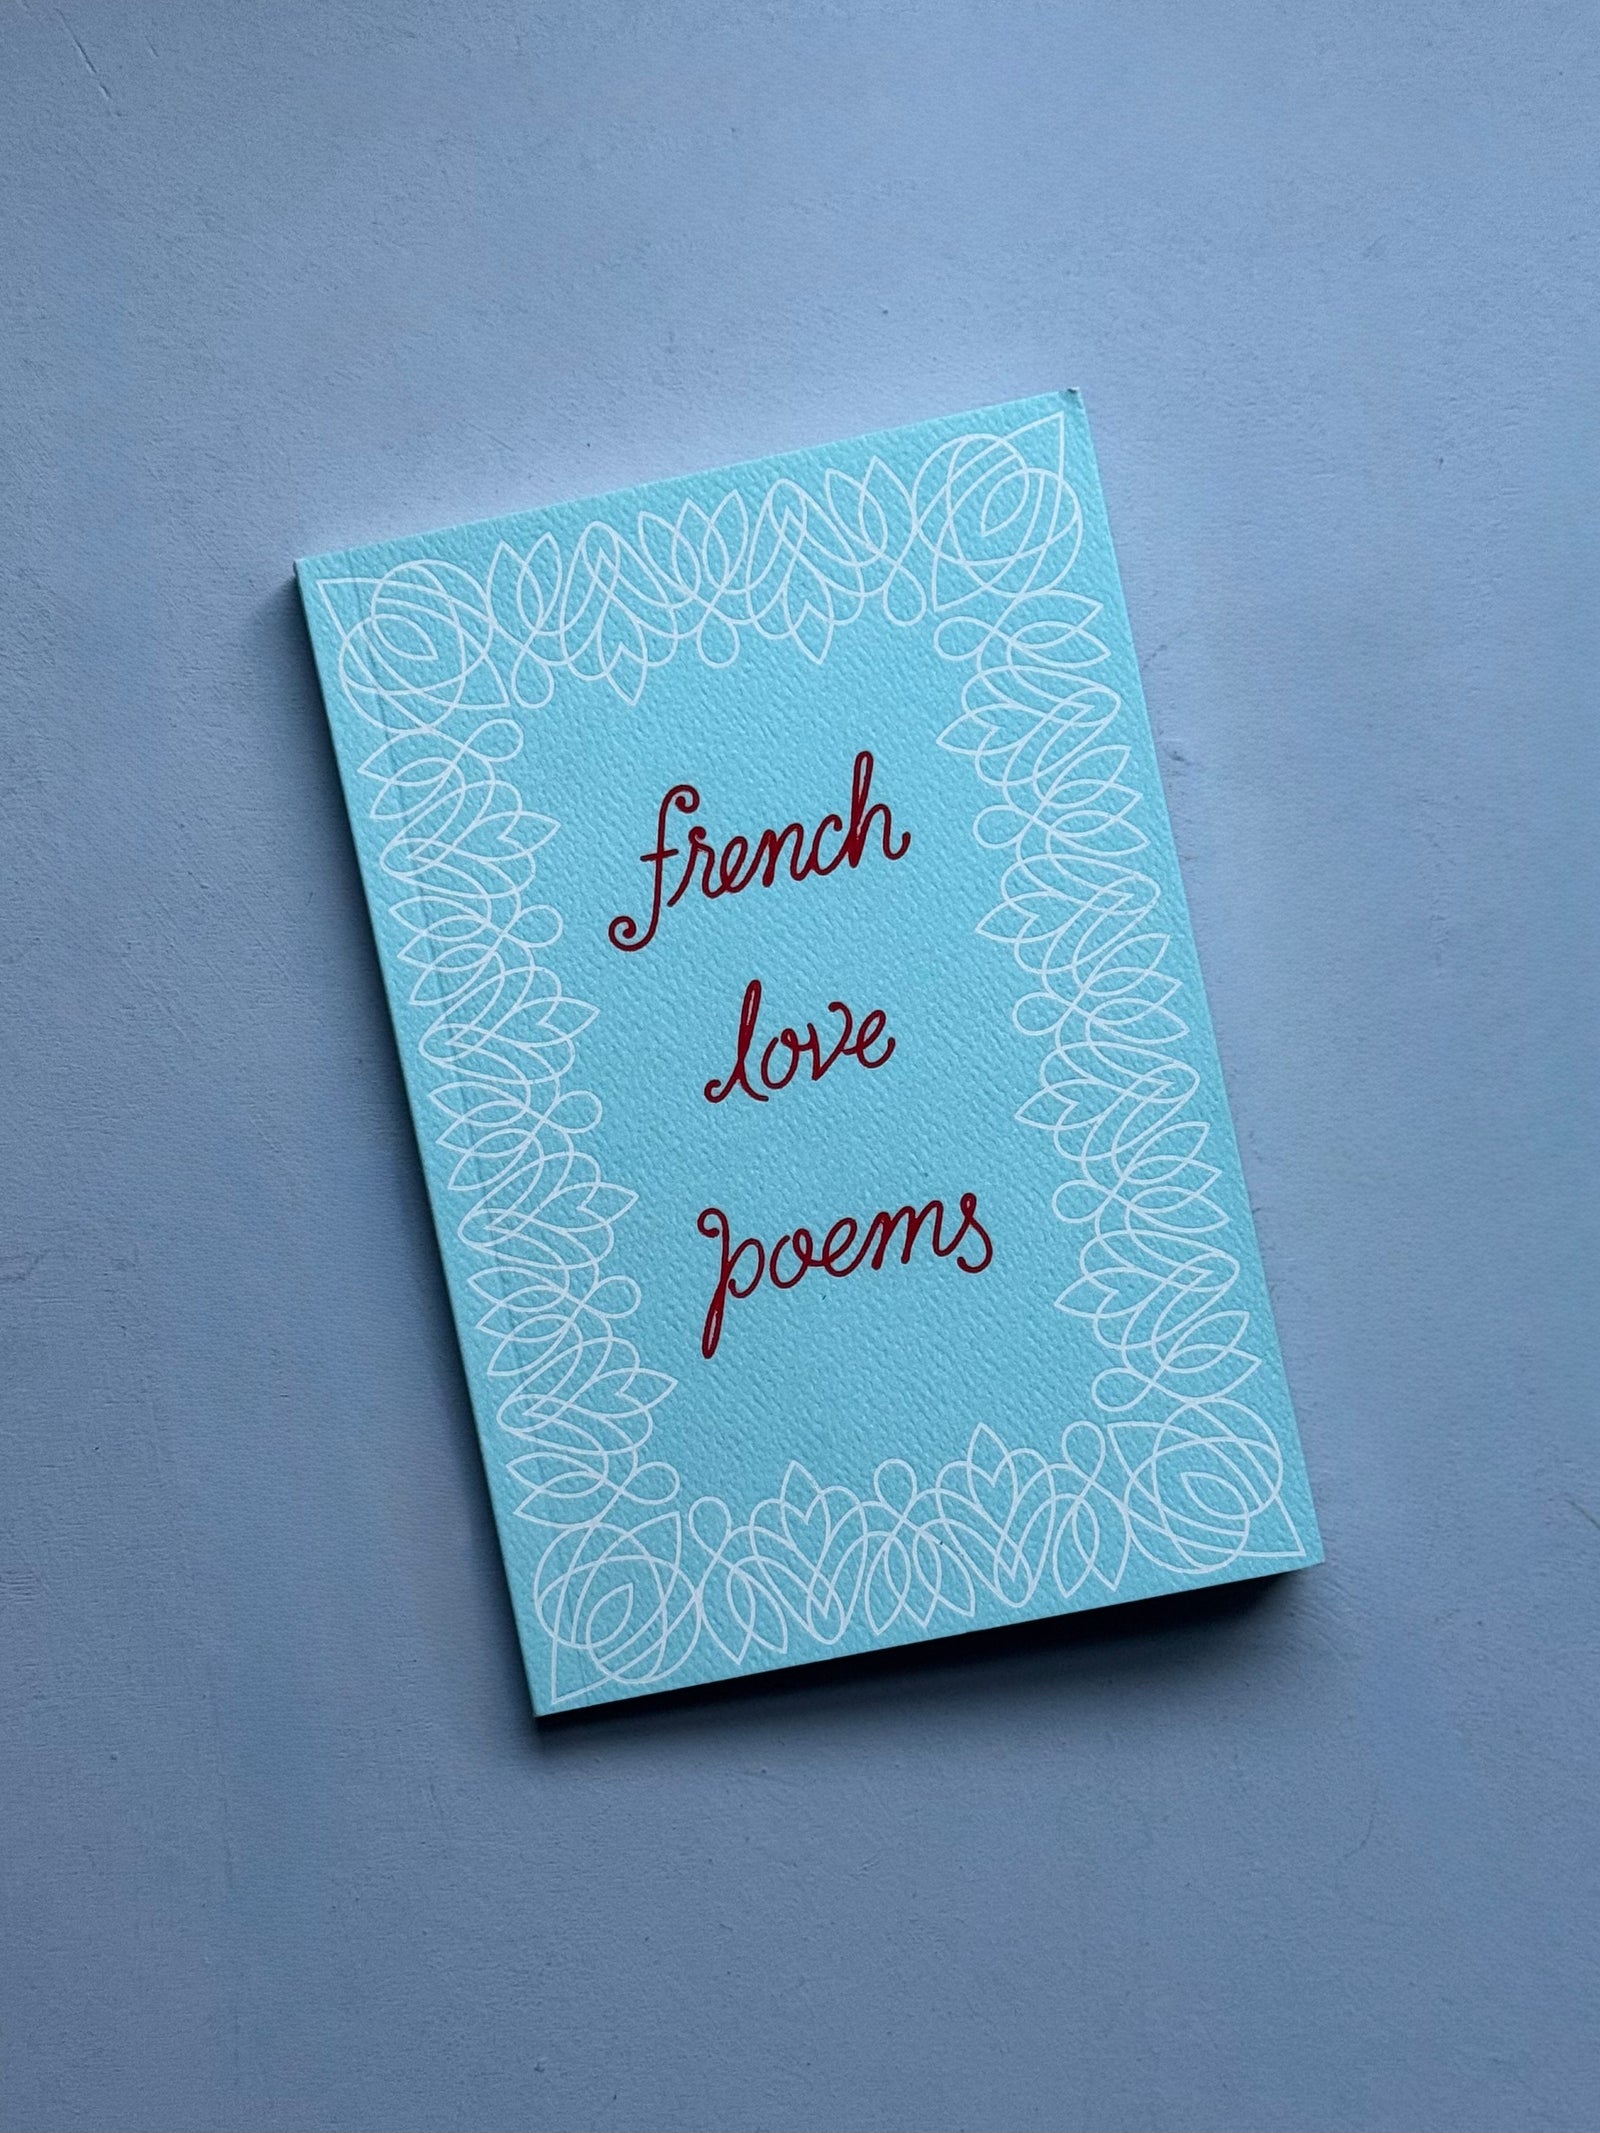 french
love
poems